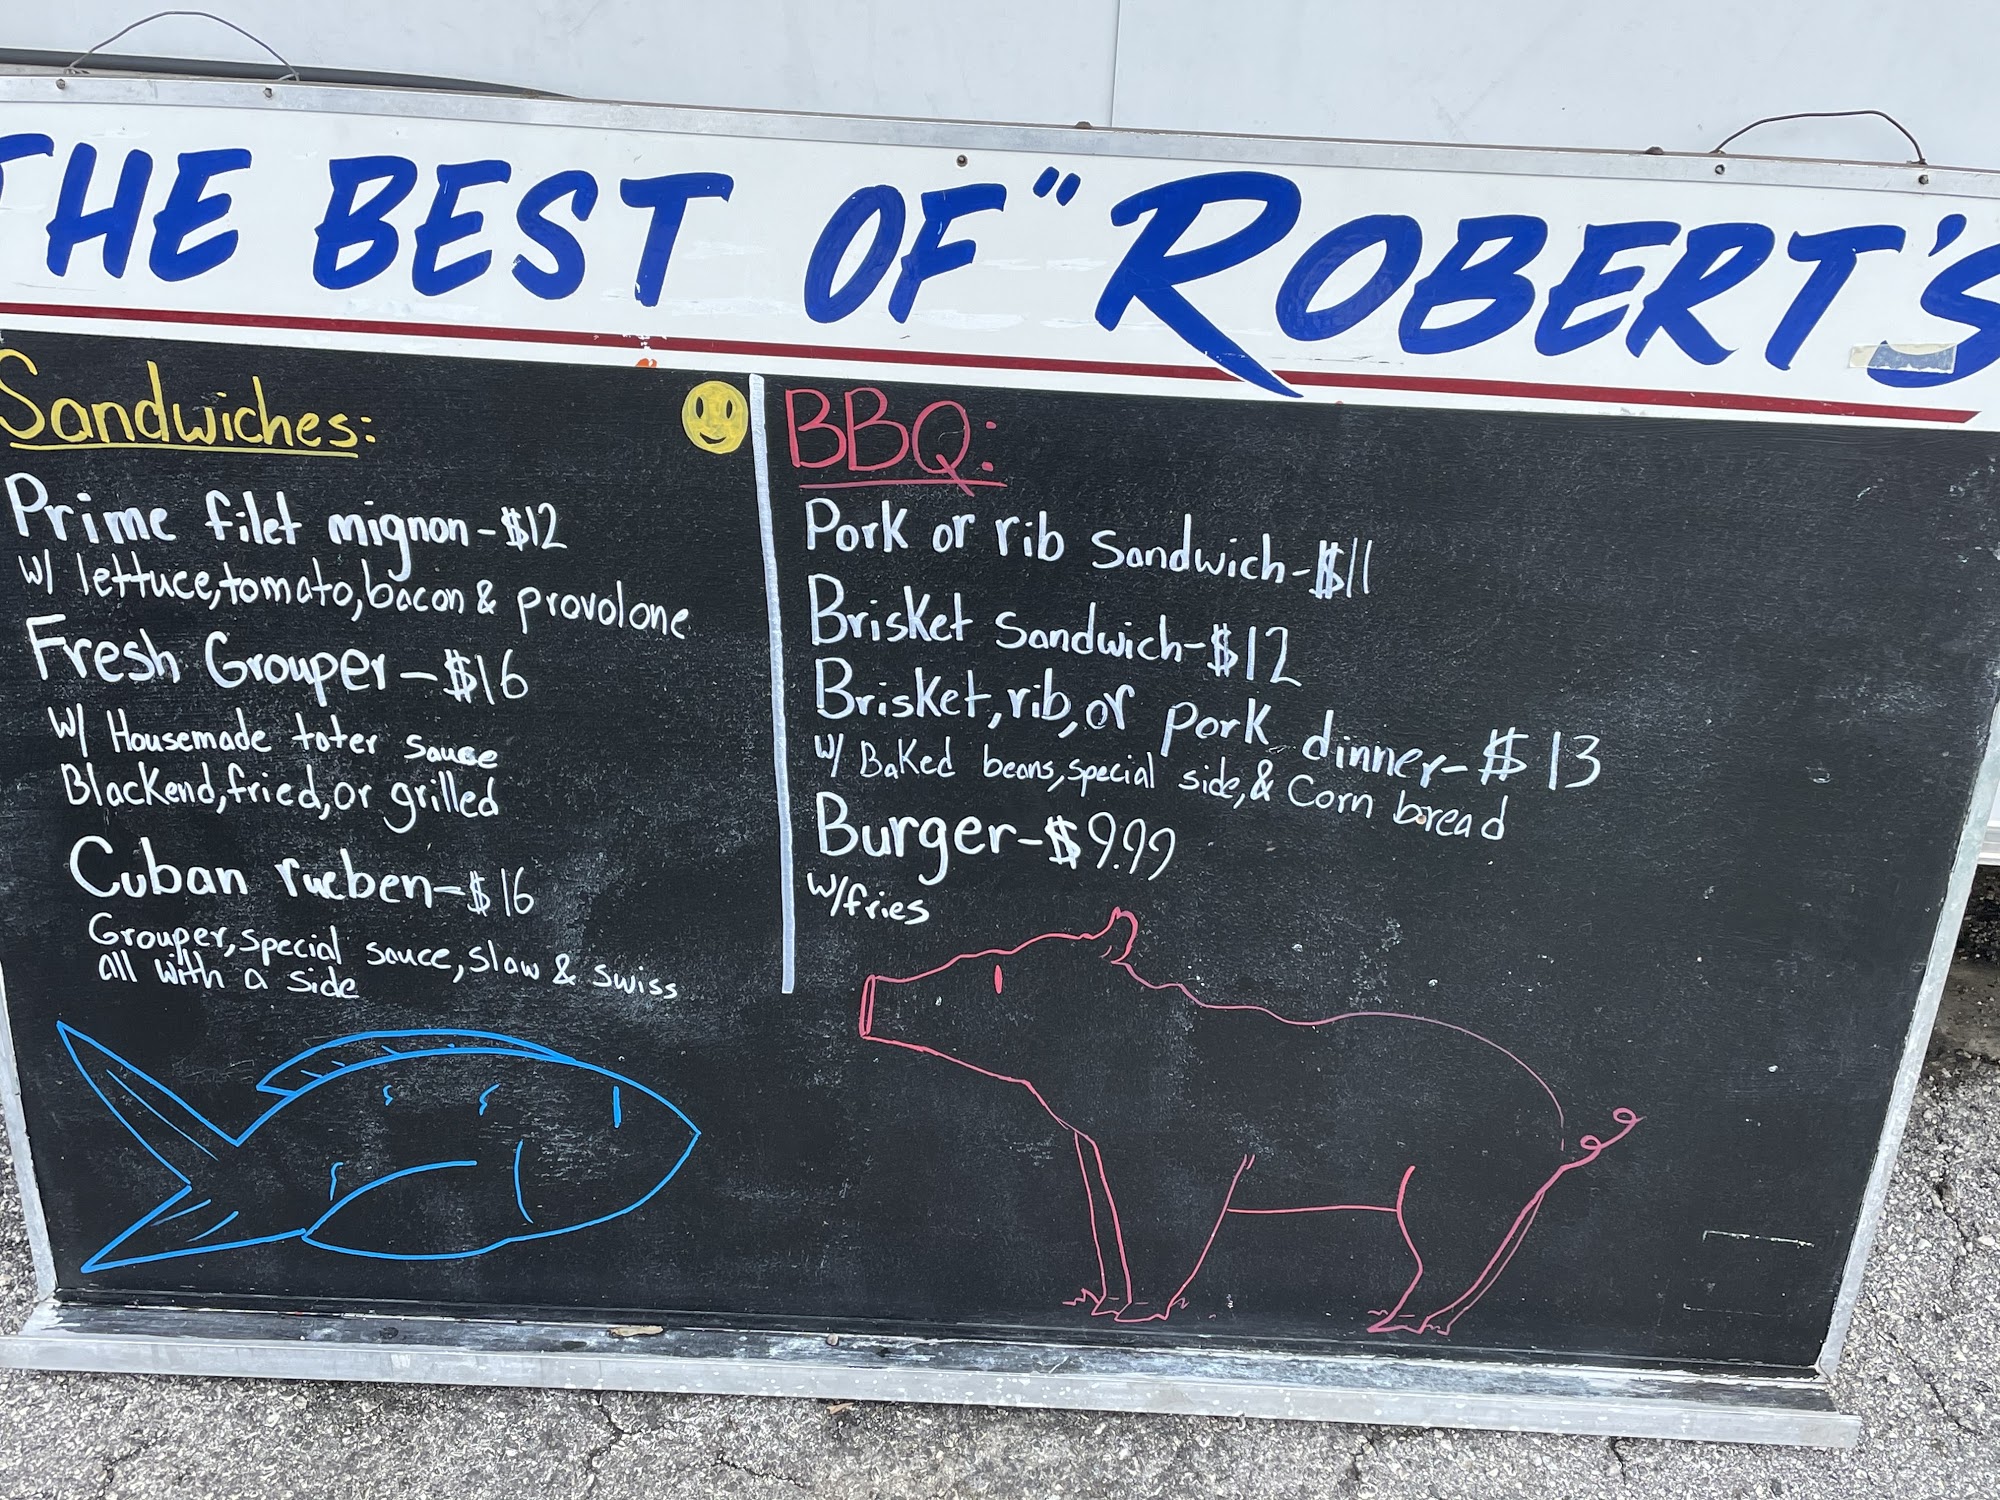 THE BEST OF "ROBERT'S
Sandwiches:
Prime filet mignon-$12
w/ lettuce,tomato,bacon & provolone
Fresh Grouper-$16
w/ Housemade tater sauce
Blackend,fried,or grilled
Cuban rueben-$16
Grouper,special sauce,slaw & swiss
all with a side
BBQ:
Pork or rib sandwich-$11
Brisket sandwich-$12
Brisket,rib,or pork dinner-$13
w/ Baked beans,special side,& Corn bread
Burger-$9.99
w/fries